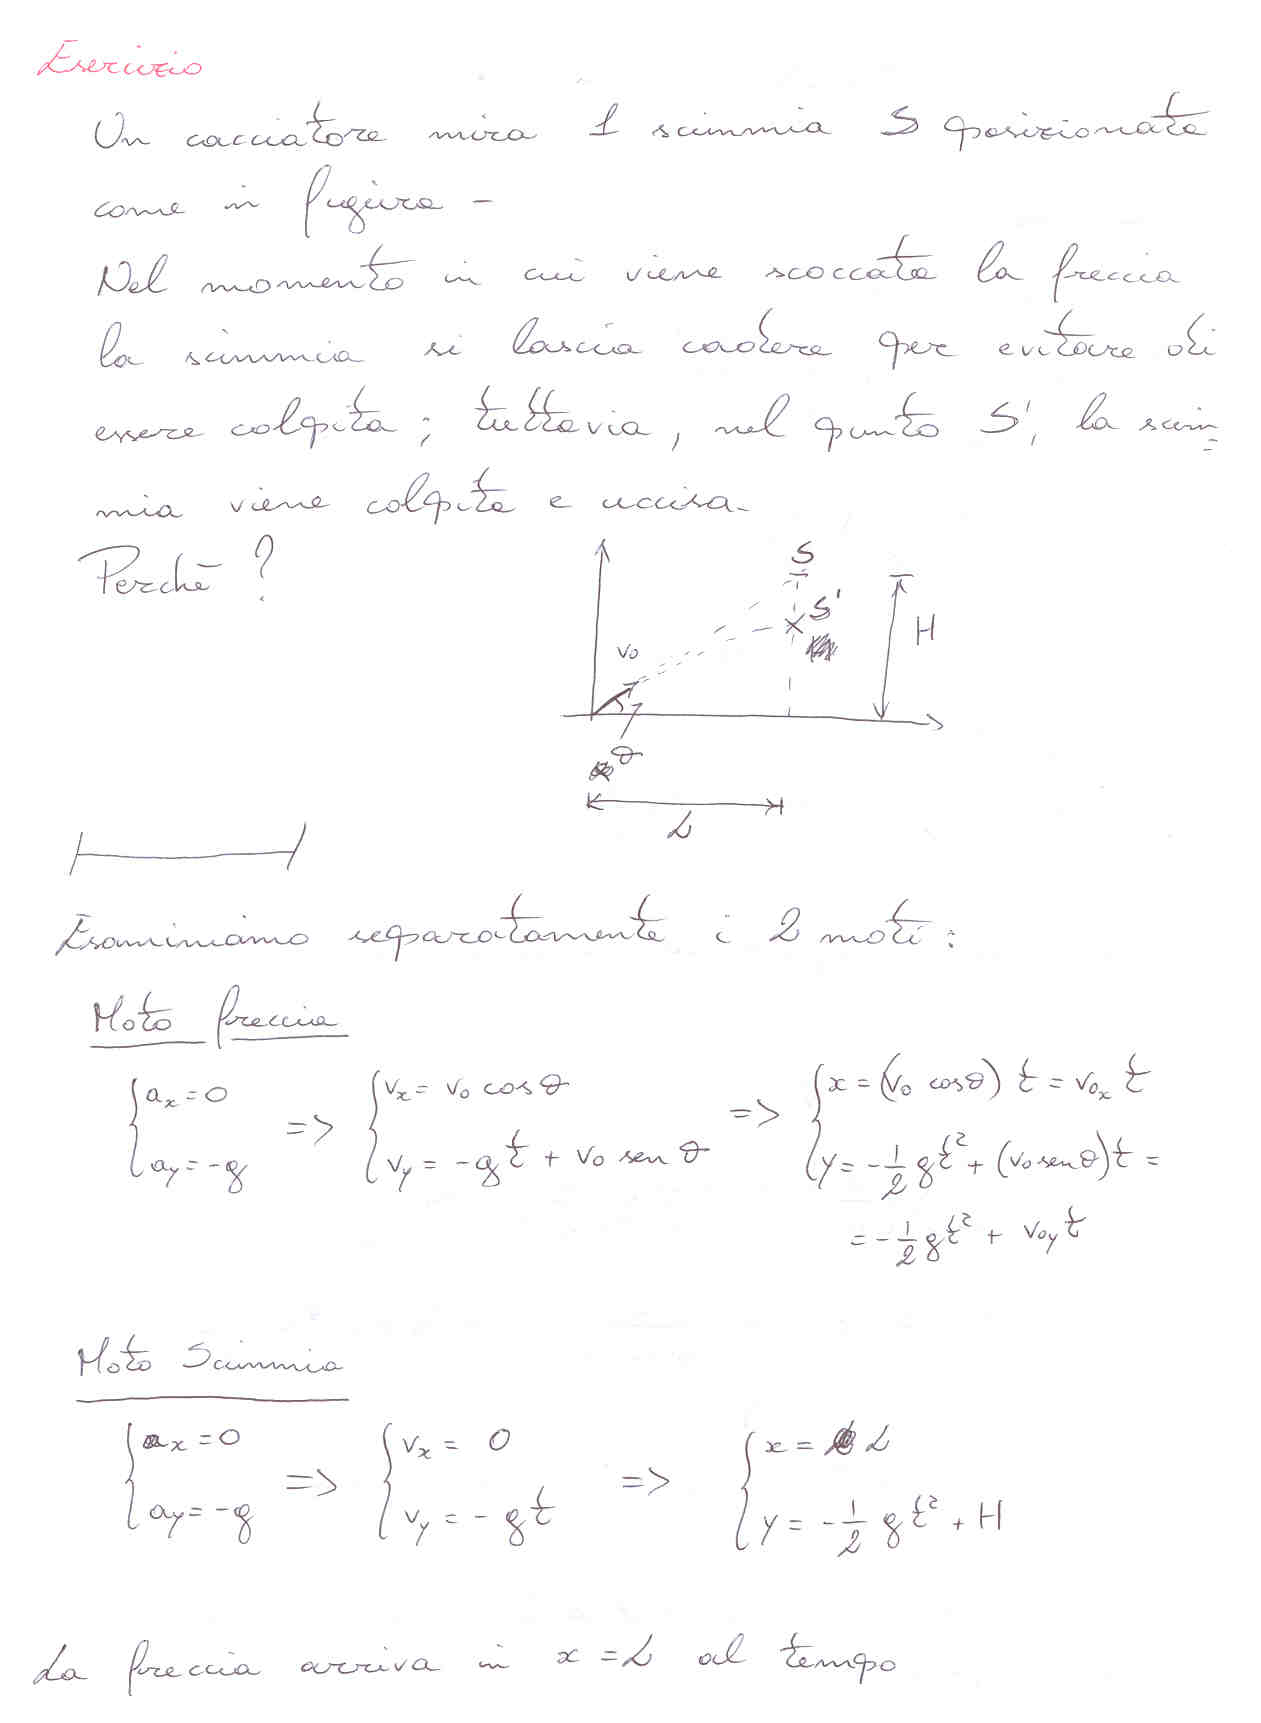 Esercizio
Un cacciatore mira 1 scimmia S posizionata
come in figura -
Nel momento in cui viene scoccata la freccia
la scimmia si lascia cadere per evitare di
essere colpita; tuttavia, nel punto S', la scim=
mia viene colpita e uccisa.
Perchè ?
S
S'
H
v₀
θ
L
Esaminiamo separatamente i 2 moti :
Moto freccia
{ aₓ = 0 => { vₓ = v₀ cos θ => { x = (v₀ cos θ) t = v₀ₓ t
{ a_y = -g { v_y = -gt + v₀ sen θ { y = -1/2 gt² + (v₀ sen θ)t =
= -1/2 gt² + v₀y t
Moto Scimmia
{ aₓ = 0 => { vₓ = 0 => { x = L
{ a_y = -g { v_y = -gt { y = -1/2 gt² + H
La freccia arriva in x = L al tempo